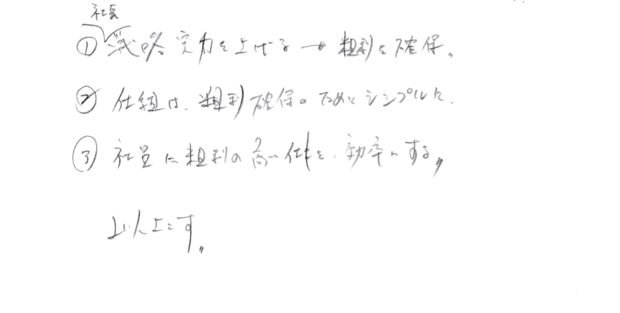 社長
① 戦略実力を上げる → 粗利を確保。
② 仕組は、粗利確保のためにシンプルに。
③ 社員に粗利の高い仕事を、効率にする。
以上です。